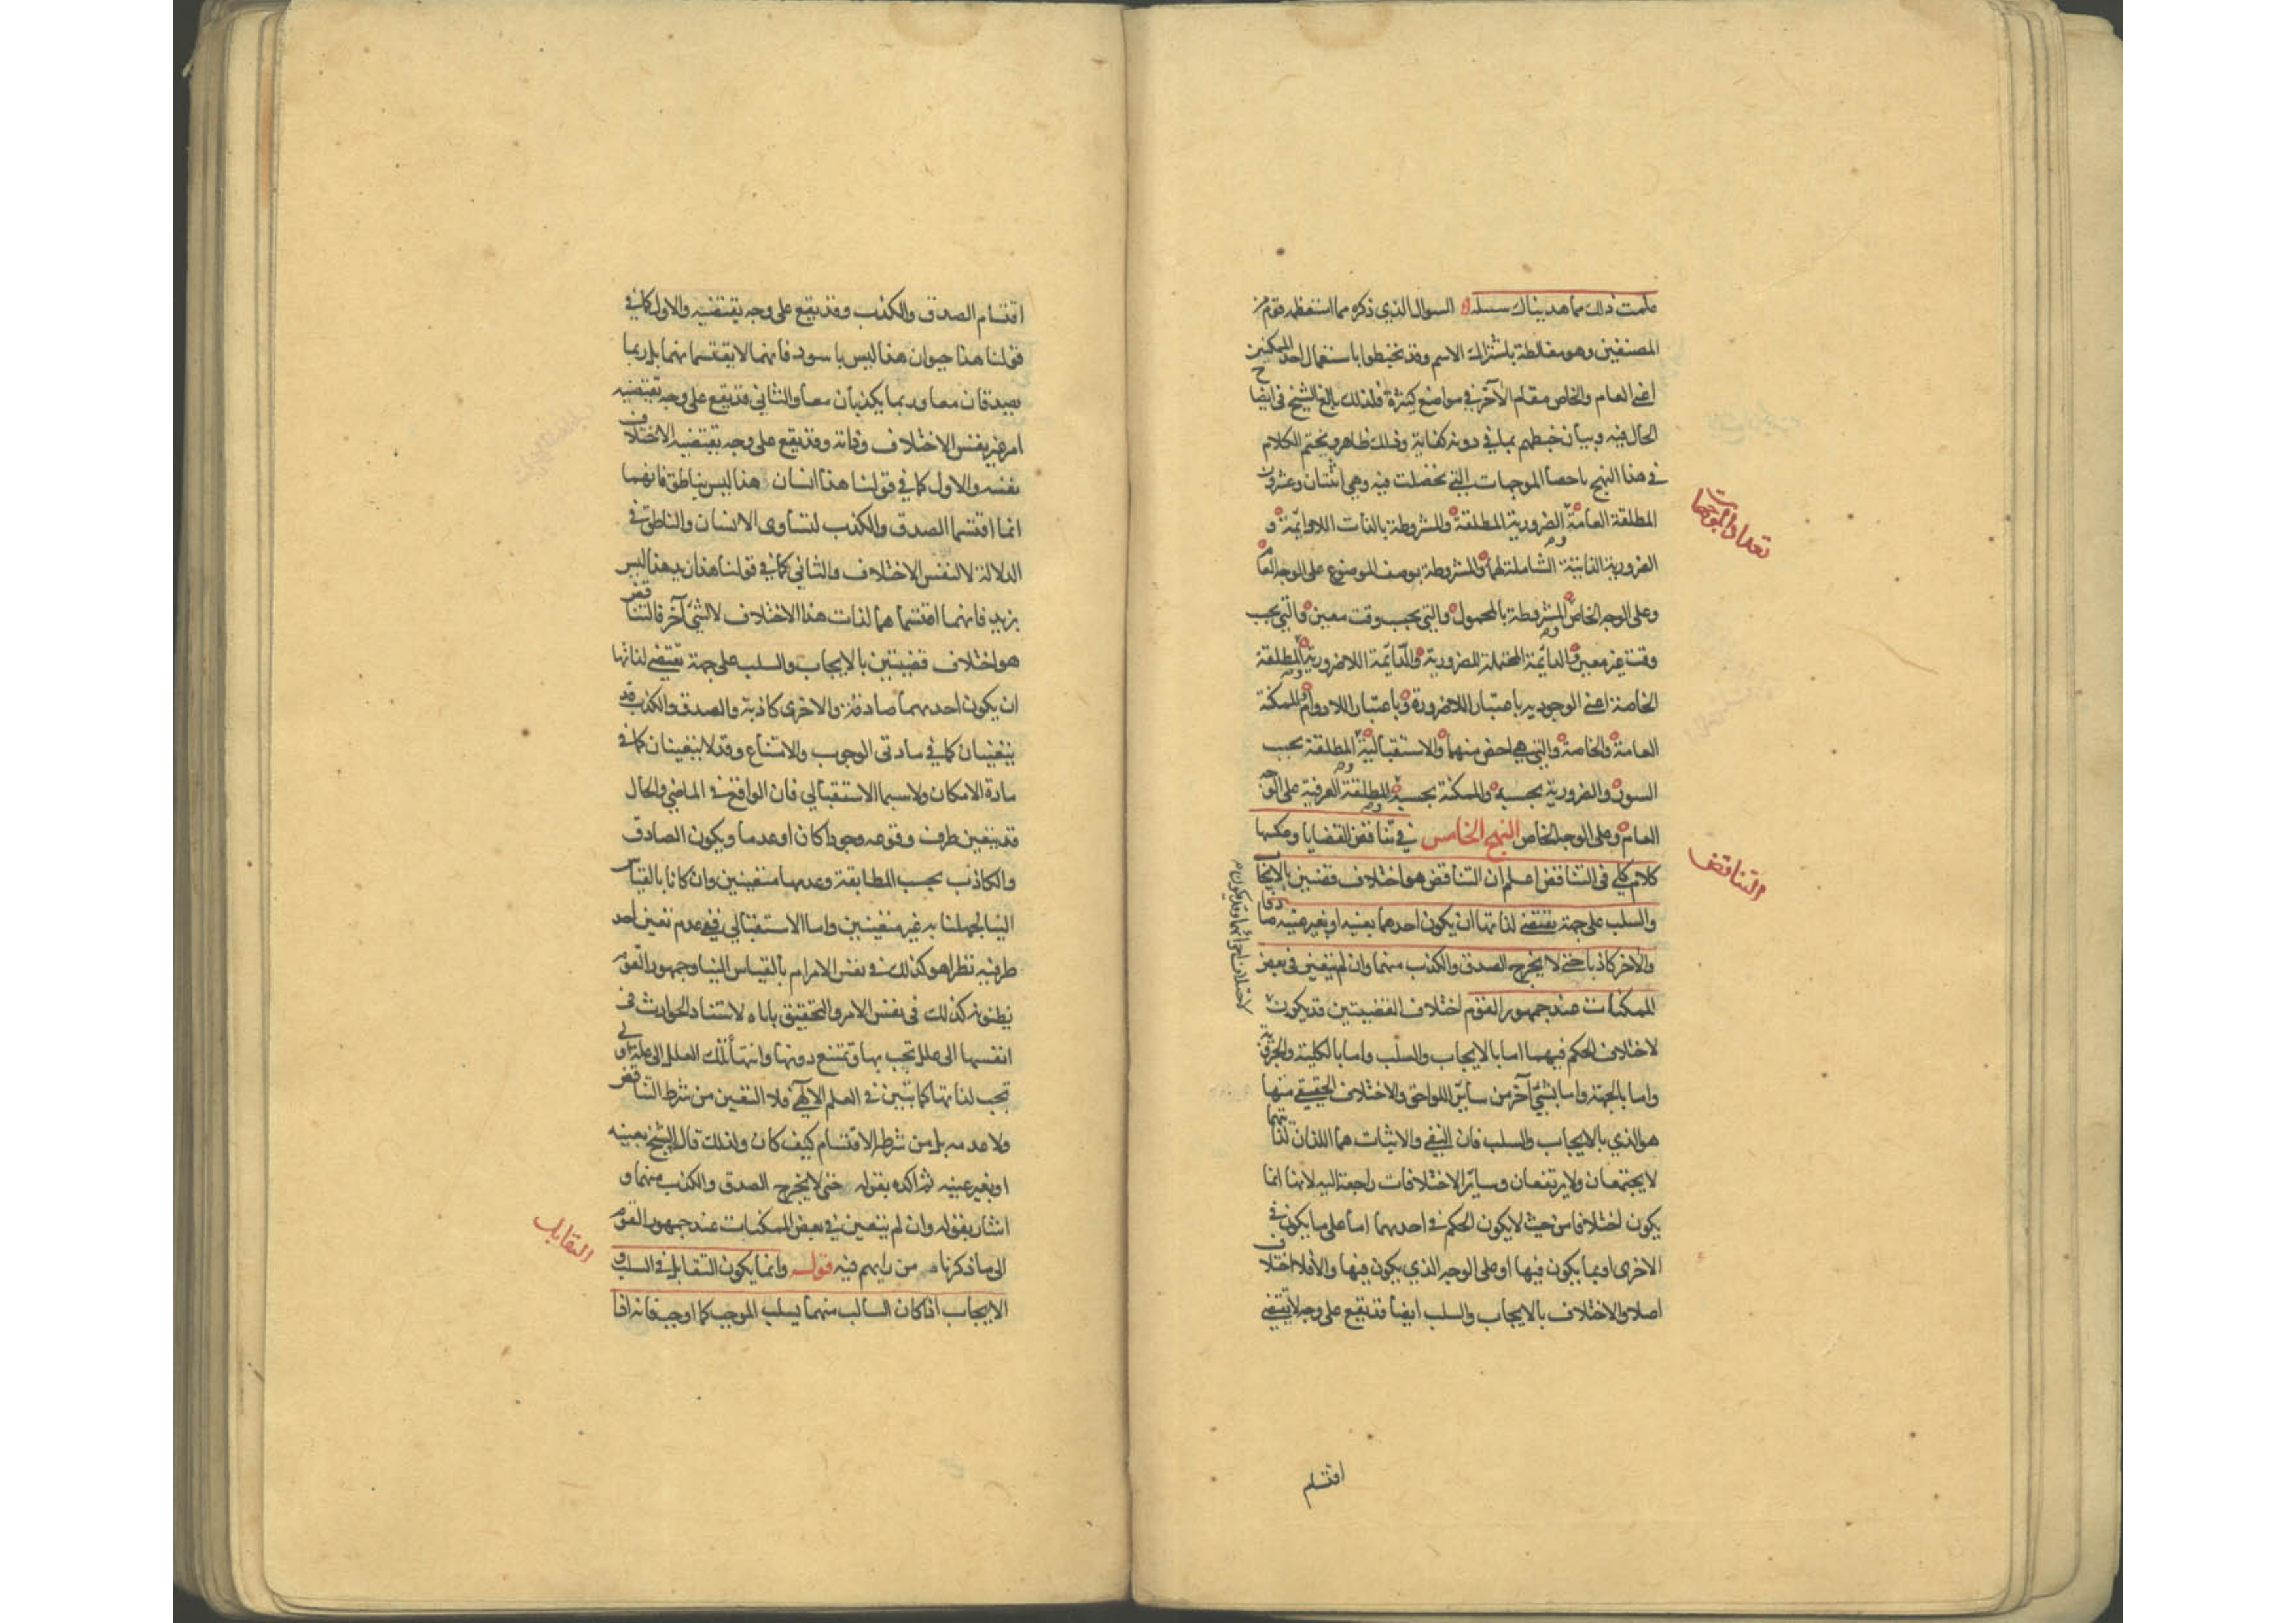 علمت ذلك مما هديناك سبيله السوال الذي ذكره مما استعظمه قوم من
المصنفين وهو مغالطة باشتراك الاسم وقد تخبطوا باستعمال احد الممكنين
اعنى العام والخاص مقام الآخر في مواضع كثيرة فلذلك بالغ الشيخ فى ايضاح
الحال فيه وبيان خبطهم بما في دونه كفاية وذلك ظاهر ويختم الكلام
في هذا النهج باحصا الموجهات التي تحصلت فيه وهي اثنتان وعشرون
المطلقة العامة الضرورية المطلقة والمشروطة بالذات اللادائمة و
الضرورية الذاتية الشاملة لهما والمشروطة بوصف الموضوع على الوجه العام
وعلى الوجه الخاص المشروطة بالمحمول والتي بحسب وقت معين والتي بحسب
وقت غير معين والدائمة المحتملة للضرورية والدائمة اللاضرورية والمطلقة
الخاصة اعنى الوجودية باعتبار اللاضرورة وباعتبار اللادوام والممكنة
العامة والخاصة والتي هي اخص منهما والاستقبالية المطلقة بحسب
السور والضرورية بحسبه والممكنة بحسبه المطلقة العرفية على الوجه
العام وعلى الوجه الخاص النهج الخامس في تناقض القضايا وعكسها
كلام كلي فى التناقض اعلم ان التناقض هو اختلاف قضيتين بالايجاب
والسلب على جهة يقتضى لذاتها ان يكون احدهما بعينه او بغير عينه صادقا
والآخر كاذبا حتى لا يخرج الصدق والكذب منهما وان لم يتعين فى بعض
الممكنات عند جمهور القوم اختلاف القضيتين قد يكون
لاختلاف اجزائها وقد يكون
لاختلاف الحكم فيهما اما بالايجاب والسلب واما بالكلية والجزئية
واما بالجهة واما بشئ آخر من سائر اللواحق والاختلاف الحقيقي منها
هو الذي بالايجاب والسلب فان النفي والاثبات هما اللذان لذاتيهما
لا يجتمعان ولا يرتفعان وسائر الاختلافات راجعة اليه لانها انما
يكون اختلافا من حيث لا يكون الحكم في احديهما اما على ما يكون في
الاخرى او بما يكون فيها او على الوجه الذي يكون فيها والا فلا اختلاف
اصلا والاختلاف بالايجاب والسلب ايضا قد يقع على وجه لا يقتضي
اقتسام
تعداد الموجهات
التناقض
اقتسام الصدق والكذب وقد يقع على وجه يقتضيه والاول كما في
قولنا هذا حيوان هذا ليس باسود فانهما لا يقتسمانهما بل ربما
يصدقان معا وربما يكذبان معا والثاني قد يقع على وجه يقتضيه
امر غير نفس الاختلاف وذاته وقد يقع على وجه يقتضيه الاختلاف
نفسه والاول كما في قولنا هذا انسان هذا ليس بناطق فانهما
انما اقتسما الصدق والكذب لتساوى الانسان والناطق في
الدلالة لا لنفس الاختلاف والثاني كما في قولنا هذا زيد هذا ليس
بزيد فانهما اقتسما هما لذات هذا الاختلاف لا لشئ آخر فالتناقض
هو اختلاف قضيتين بالايجاب والسلب على جهة تقتضى لذاتها
ان يكون احديهما صادقة والاخرى كاذبة والصدق والكذب قد
يتعينان كما في مادتى الوجوب والامتناع وقد لا يتعينان كما في
مادة الامكان ولا سيما الاستقبالي فان الواقع في الماضي والحال
قد يتعين طرف وقوعه وجودا كان او عدما ويكون الصادق
والكاذب بحسب المطابقة وعدمها متعينين وان كانا بالقياس
الينا لجهلنا به غير متعينين واما الاستقبالي ففي عدم تعين احد
طرفيه نظر اهو كذلك في نفس الامر ام بالقياس الينا وجمهور القوم
يظنونه كذلك فى نفس الامر والتحقيق ياباه لاستناد الحوادث في
انفسها الى علل تجب بها وتمتنع دونها وانتهاء تلك العلل الى علة اولى
تجب لذاتها كما يتبين في العلم الالهى فلا التعين من شرط التناقض
ولا عدمه بل من شرطه الاقتسام كيف كان ولذلك قال الشيخ بعينه
او بغير عينه ثم اكده بقوله حتى لا يخرج الصدق والكذب منهما و
اشار بقوله وان لم يتعين في بعض الممكنات عند جمهور القوم
الى ما ذكرناه من رايهم فيه قوله وانما يكون التقابل في السلب و
الايجاب اذا كان السالب منهما يسلب الموجب كما اوجب فانه اذا
التقابل